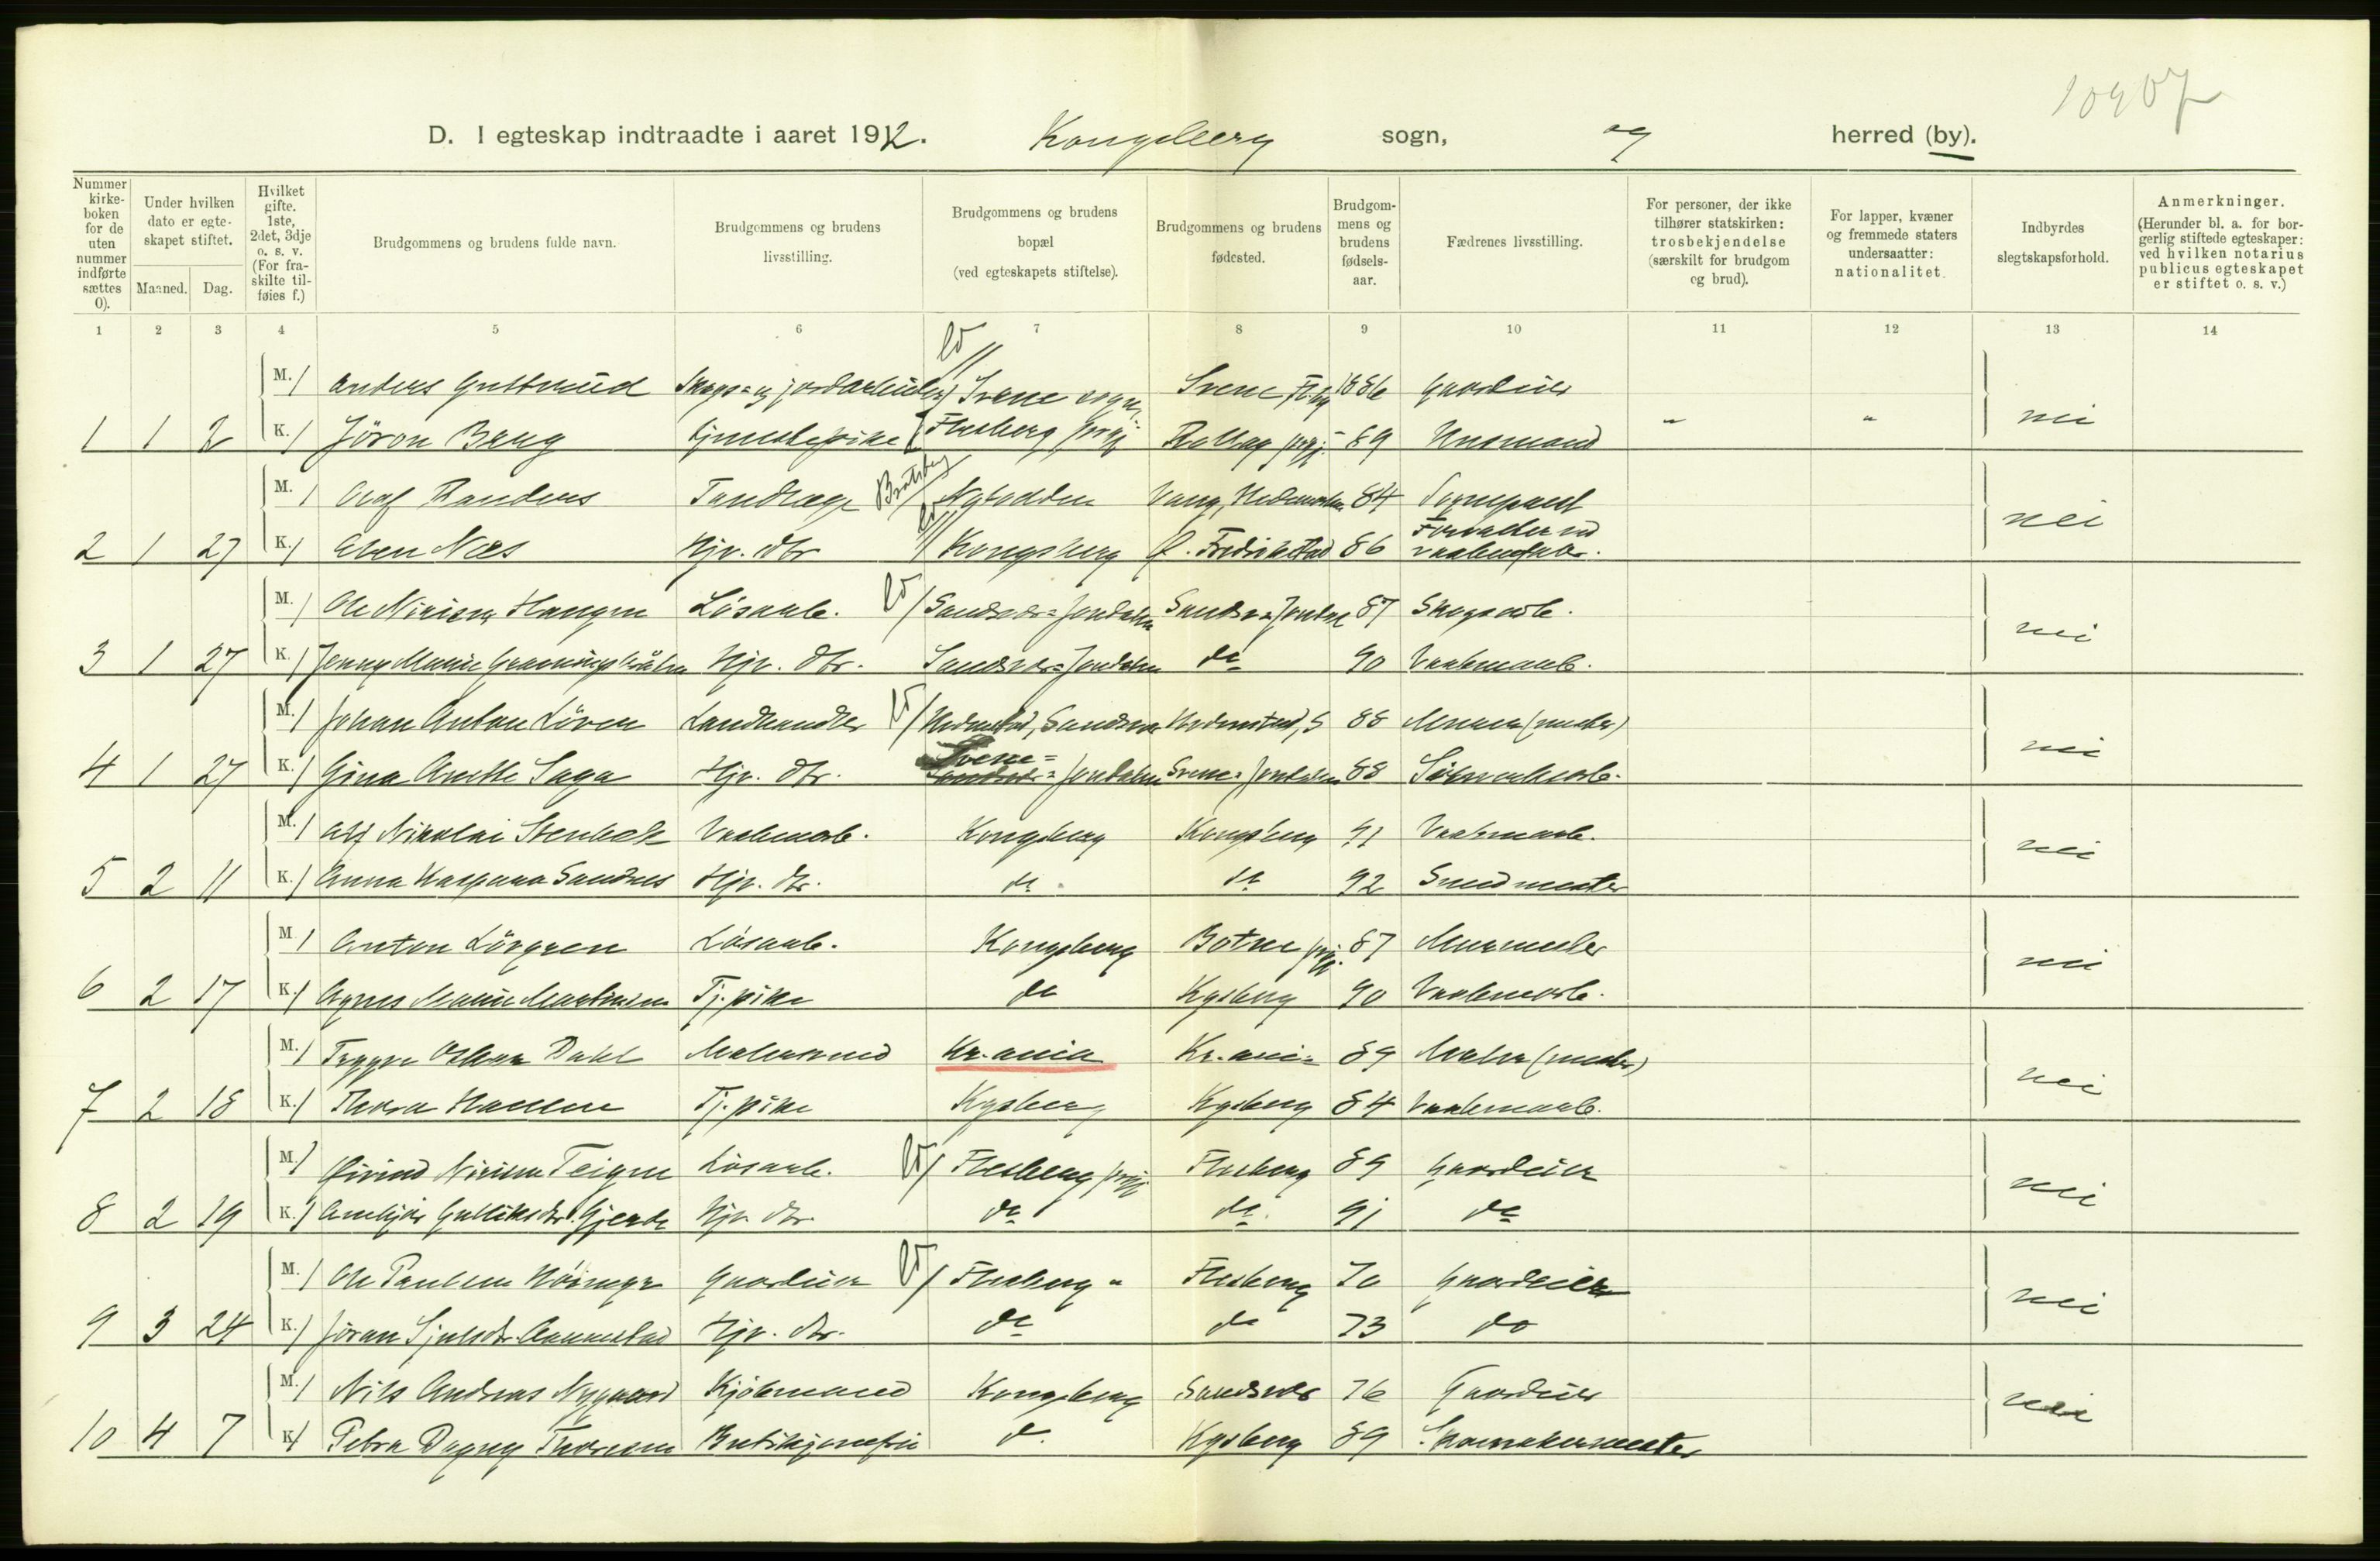 D. I egteskap indtraadte i aaret 1912. Kongsberg sogn, og herred (by).
Nummer kirkeboken for de uten nummer indførte sættes 0).
Under hvilken dato er egteskapet stiftet.
Maaned. Dag.
Hvilket gifte. 1ste, 2det, 3dje o. s. v. (For fraskilte tilføies f.)
Brudgommens og brudens fulde navn.
Brudgommens og brudens livsstilling.
Brudgommens og brudens bopæl (ved egteskapets stiftelse).
Brudgommens og brudens fødested.
Brudgommens og brudens fødselsaar.
Fædrenes livsstilling.
For personer, der ikke tilhører statskirken: trosbekjendelse (særskilt for brudgom og brud).
For lapper, kvæner og fremmede staters undersaatter: nationalitet.
Indbyrdes slegtskapsforhold.
Anmerkninger. (Herunder bl. a. for borgerlig stiftede egteskaper: ved hvilken notarius publicus egteskapet er stiftet o. s. v.)
1 2 3 4 5 6 7 8 9 10 11 12 13 14
M. 1 Anders Svene sogn, Svene 1886 Gaardeier
1 1 2 K. 1 Jöron Berg tjenestepike Flesberg prgj Rollag prgj. 89 Husmand " " nei
M. 1 Olaf Randers Tandlæge Bratsberg Notodden Vang, Hedemarken 84
2 1 27 K. 1 Næs Hjv. dtr Kongsberg Fredrikstad 86 Forvalter ved vaabenfabr. nei
M. 1 Ole Nirisen Haugen Lösarb. Sandsvær=Jondalen Sandsv=Jondal 87 Skogsarb.
3 1 27 K. 1 Jenny Marie Hjv. dtr. Sandsvær=Jondalen do 90 Vaabenarb. nei
M. 1 Johan Anton Löver Landhandler Hedenstad, Sandsvær Hedenstad, S 88 Murer (mester)
4 1 27 K. 1 Gina Anette Saga Hjv. dtr. Svene= Jondalen Svene=Jondalen 88 nei
M. 1 Alf Nikolai Stenbek Vaabenarb. Kongsberg Kongsberg 91 Vaabenarb.
5 2 11 K. 1 Anna Kaspara Sandnes Hjv. dtr. do do 92 Smedmester nei
M. 1 Anton Lövgren Lösarb. Kongsberg Botne prgj. 87 Murmester
6 2 17 K. 1 Agnes Marie Martinsen Tj.pike do Kgsberg 90 Vaabenarb. nei
M. 1 Trygve Oskar Dahl Malersvend Kr.ania Kr.ania 89 Maler (mester)
7 2 18 K. 1 Thora Hansen Tj.pike Kgsberg Kgsberg 84 Vaabenarb. nei
M. 1 Eivind Nirisen Teigen Lösarb. Flesberg prgj Flesberg 89 Gaardeier
8 2 19 K. 1 Gulliksdtr. Gjerde Hjv. dtr. do do 91 do nei
M. 1 Ole Paulsen Gaardeier Flesberg " Flesberg 70 Gaardeier
9 3 24 K. 1 Jöran Hjv. dtr. do do 73 do nei
M. 1 Nils Andreas Nygaard Kjöbmand Kongsberg Sandsvær 76 Gaardeier
10 4 7 K. 1 Petra Dagny Thoresen Butikjomfru d. Kgsberg 89 Skomakermester nei